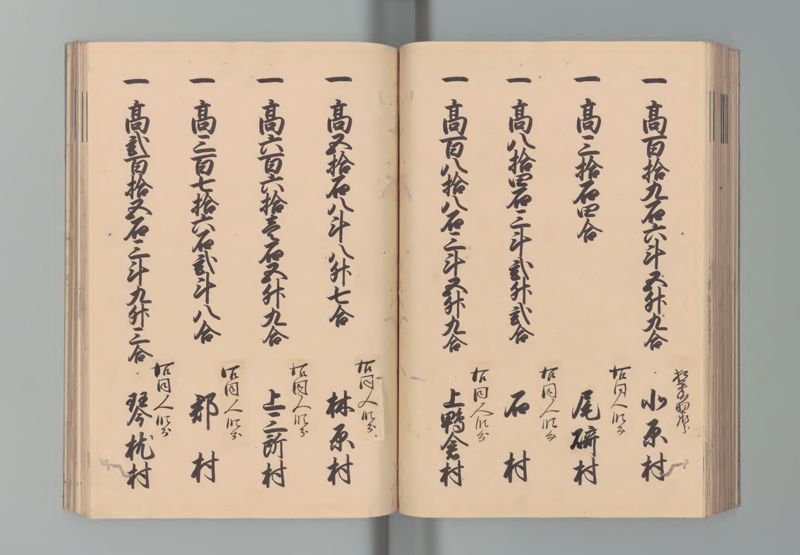 一 高百拾九石六斗五升九合
小原村
一 高三拾石四合
右同人知行
尾砕村
一 高八拾四石三斗弐升弐合
右同人知行
石村
一 高百八拾八石三斗五升九合
右同人知行
上鴨倉村
一 高五拾石八斗八升七合
右同人知行
林原村
一 高六百六拾壱石五升九合
右同人知行
上三所村
一 高三百七拾六石弐斗八合
右同人知行
郡村
一 高弐百拾五石三斗九升三合
右同人知行
琴枕村